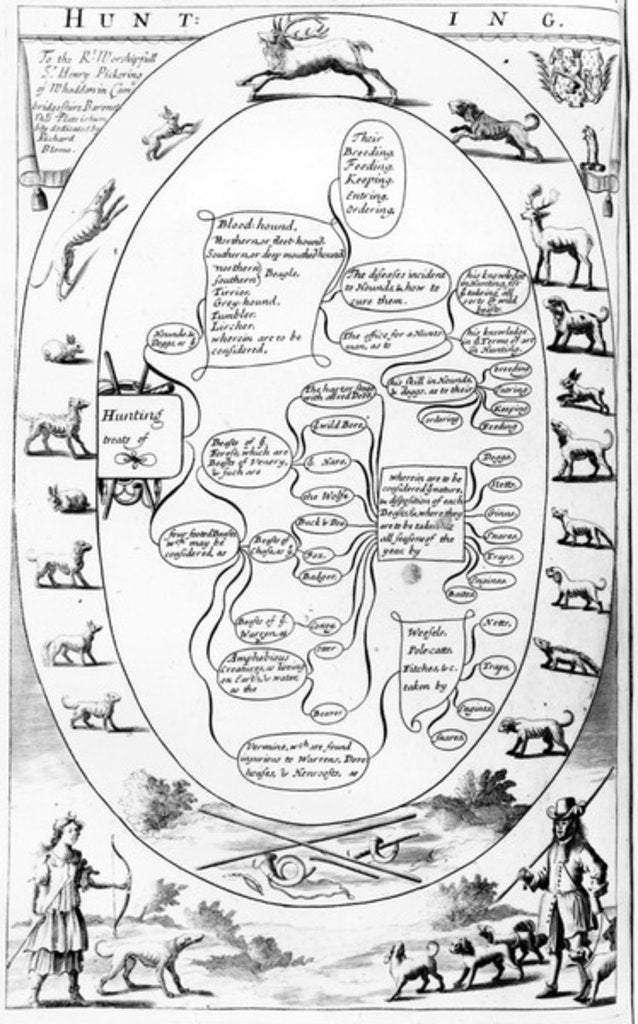 HUNT: ING.
To the Rt. Worshipfull
Sr. Henry Pickering
of Whaddon in Cam
bridgeshire Baronet
This Plate is hum
bly dedicated by
Richard
Blome.
Their
Breeding.
Feeding.
Keeping.
Entring.
Ordering.
Blood-hound.
Northern, or fleet-hound.
Southern, or deep mouthed hound
northern
southern } Beagle.
Tirrier.
Grey-hound.
Tumbler.
Lurcher.
wherein are to be
considered.
The diseases incident
to Hounds & how to
cure them.
The office for a Hunts-
man, as to
his knowledge
in Hunting, for
all
sorts of wild
beasts.
his knowledge
in ye Terms of art
in Hunting.
Hounds &
Doggs, as ye
Hunting
treats of
his skill in Hounds,
& doggs, as to their
breeding
Entring
Keeping
Feeding
Ordering
Beasts of ye
Forest, which are
Beasts of Venery,
& such are
ye wild Bore,
ye Hare,
the Wolfe,
four footed Beasts
wch may be
considered, as
Beasts of
Chase, as ye
Buck & Doe
Fox,
Badger.
wherein are to be
considered ye nature,
& disposition of each
Beast, & where they
are to be taken at
all seasons of the
year, by
Doggs.
Netts.
Ginns.
Snares.
Traps.
Engines
Baites.
Beasts of ye
Warren, as
Coneys
Amphebious
Creatures, as liveing
on Earth, & water
as the
Otter
Beaver
Weesels.
Pole-catts.
Fitches, &c.
taken by
Netts,
Traps,
Engines
Snares
Vermine, wch are found
injurious to Warrens, Dove
houses, & Henroosts, as